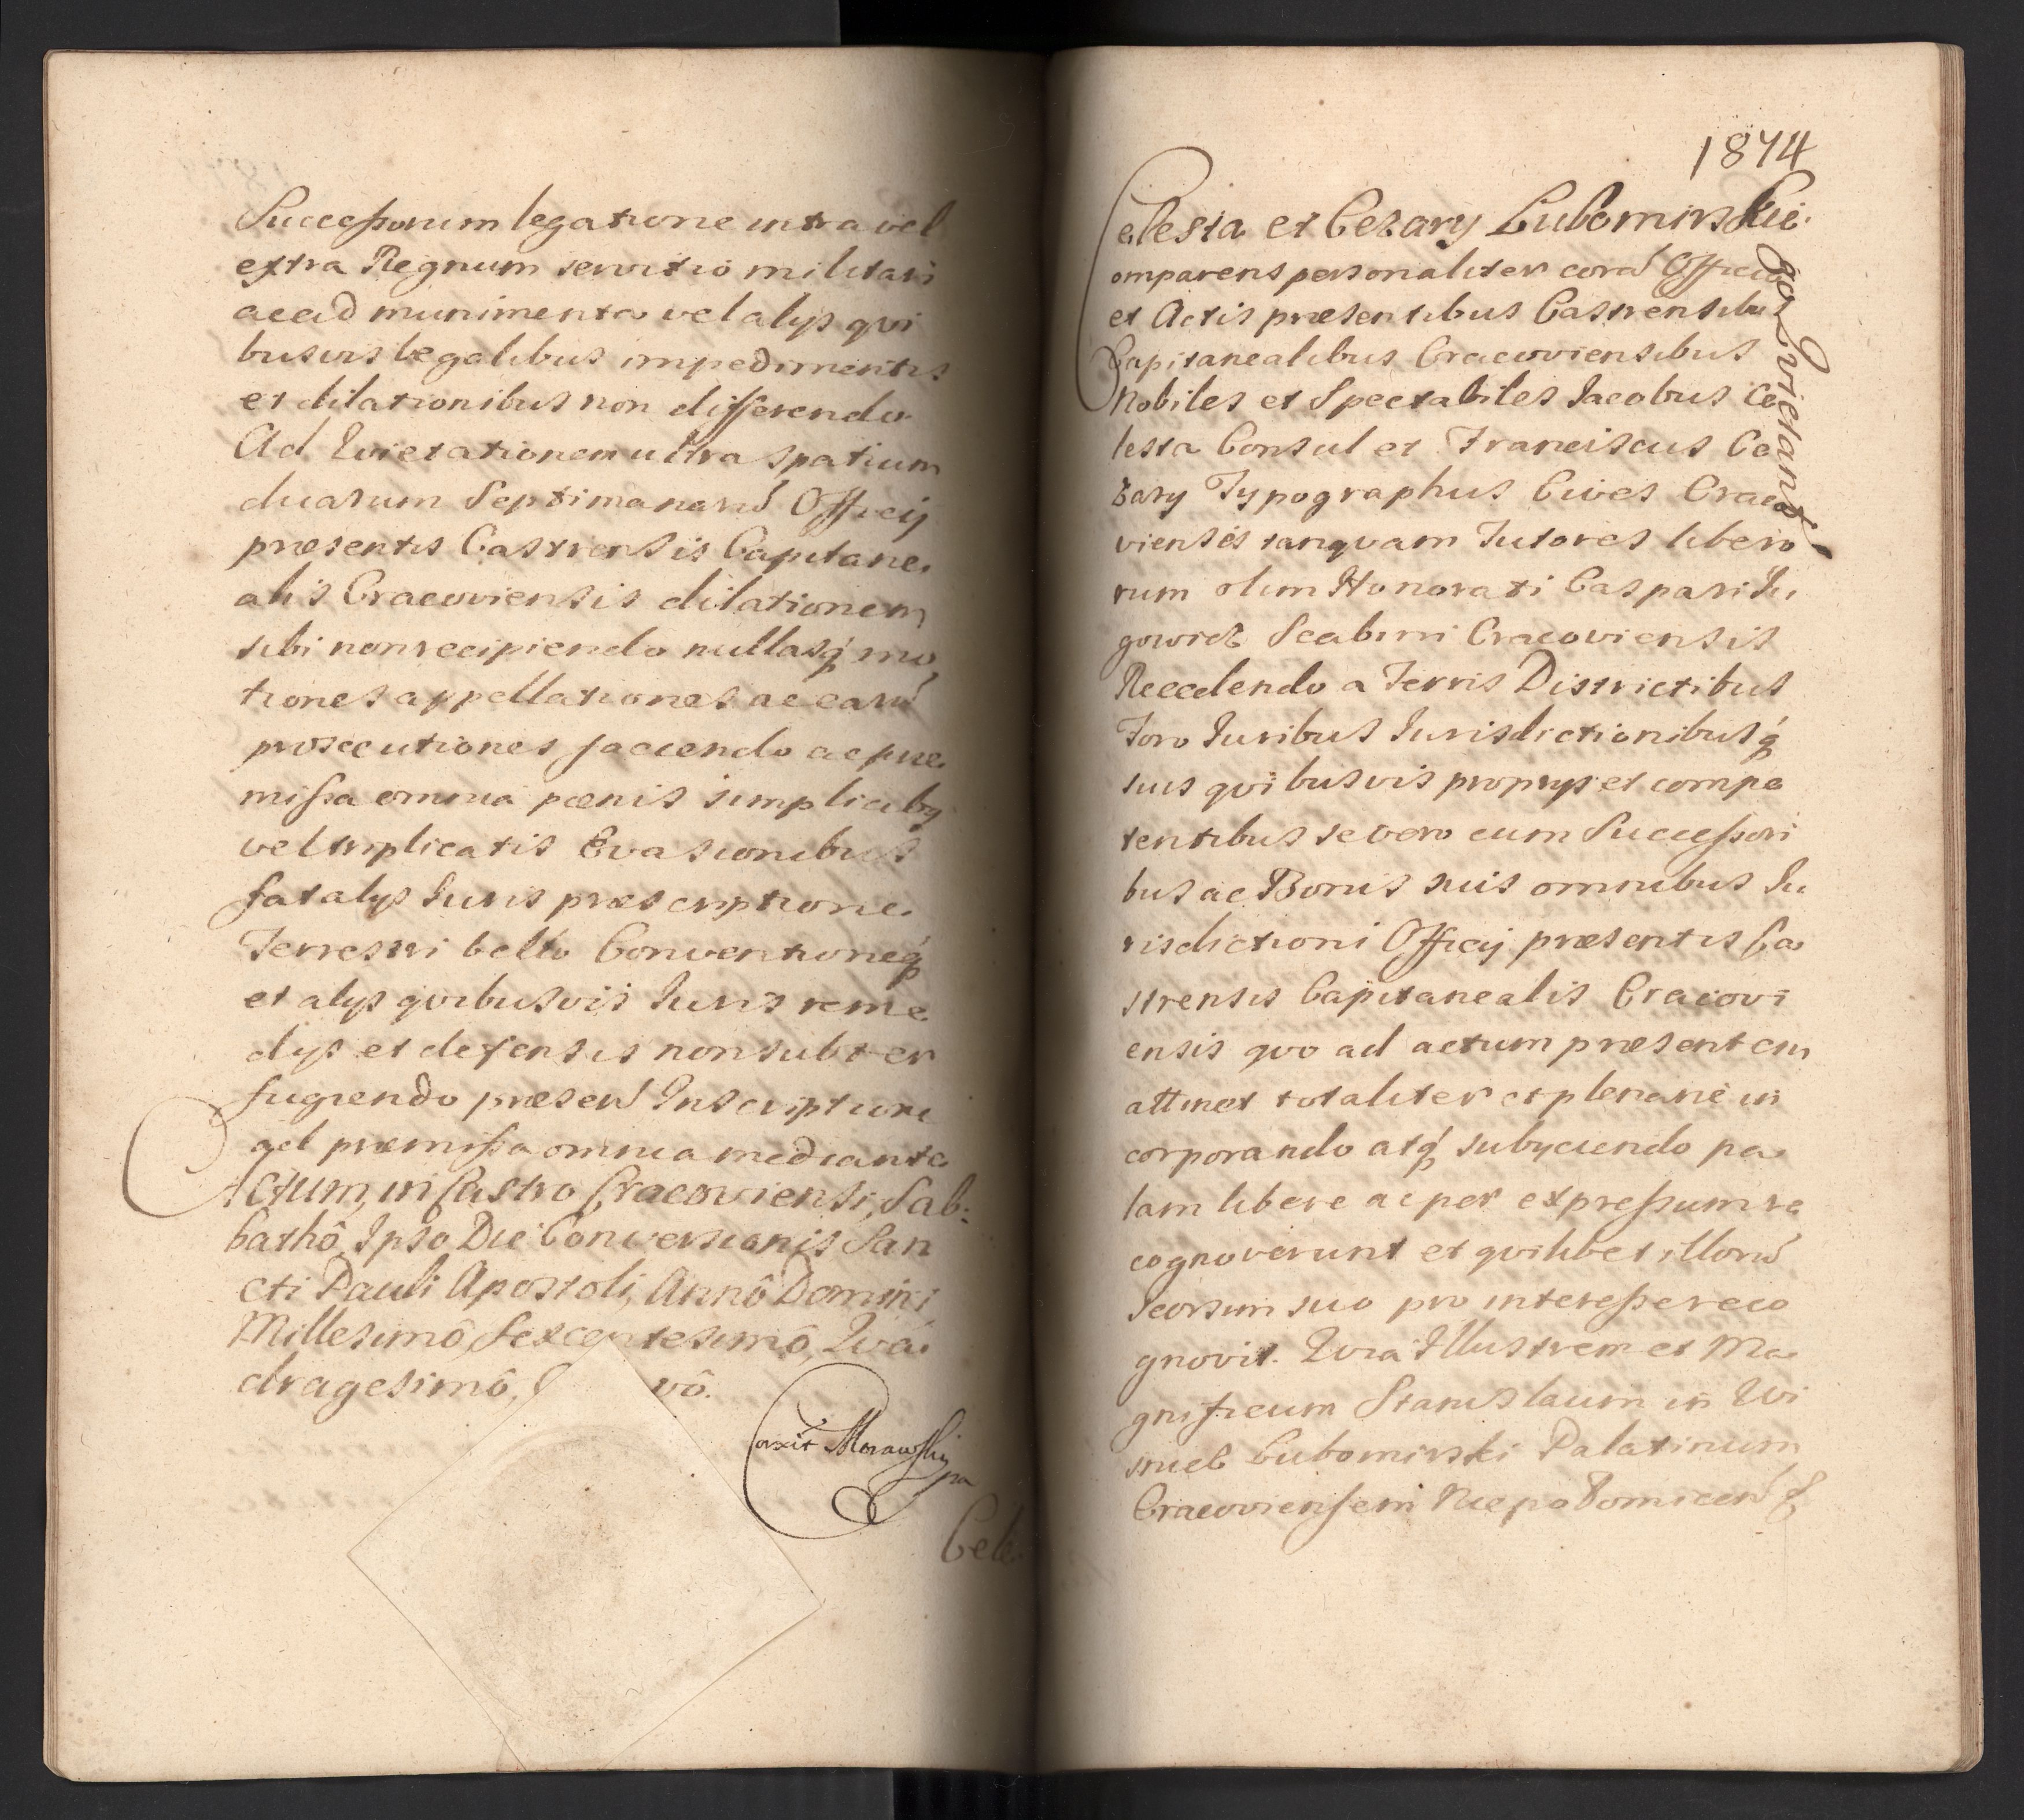 Successorum legatione intra vel
extra Regnum servitio militari
ac ad munimenta vel alijs qvi
busvis legalibus impedimentis
et dilationibus non differendo
Ad Qvietationem ultra spatium
duarum Septimanarũ Officij
præsentis Castrensis Capitane
alis Cracoviensis dilationem
sibi non recipiendo nullasq́ mo
tiones appellationes ac earũ
prosecutiones faciendo ac præ
missa omnia pœnis simplicibus
vel triplicatis Evasionibus
fatalys Juris præscriptione
Terrestri bello Conventioneq́
et alys qvibusvis Juris reme
dys et defensis non subter
fugiendo præsen Inscriptione
ad præmissa omnia mediante
Actum, in Castro Cracoviensi, Sab:
bathô, Ipso Die Conversionis San
cti Pauli Apostoli, Annô Domini
Millesimô, Sexcentesimô, Qva
dragesimô, vô.
Morawski
Cele
1874
Celesta et Cezary Lubomirskie:
go Qvietant
omparens personaliter corã Officio
et Actis præsentibus Castrensibus
Capitanealibus Cracoviensibus
Nobiles et Spectabiles Jacobus Ce
lesta Consul et Franciscus Ce
zary Typographus Cives Craco
vienses tanqvam Tutores libero
rum olim Honorati Caspari Ju
gowicz Scabini Cracoviensis
Recedendo a Terris Districtibus
Foro Juribus Jurisdictionibusq́
suis qvibusvis proprys et compe
tentibus se vero cum Successori
bus ac Bonis suis omnibus Ju
risdictioni Officij præsentis Ca
strensis Capitanealis Cracovi
ensis qvo ad actum præsentem
attinet totaliter et plenarie in
corporando atq́ subyciendo pa
lam libere ac per expressum re
cognoverunt et qvilibet illorũ
seorsim suo pro interesse reco
gnovit. Qvia Illustrem et Ma
gnificum Stanislaum in Wi
snicz Lubomirski Palatinum
Cracoviensem Niepolomicen &